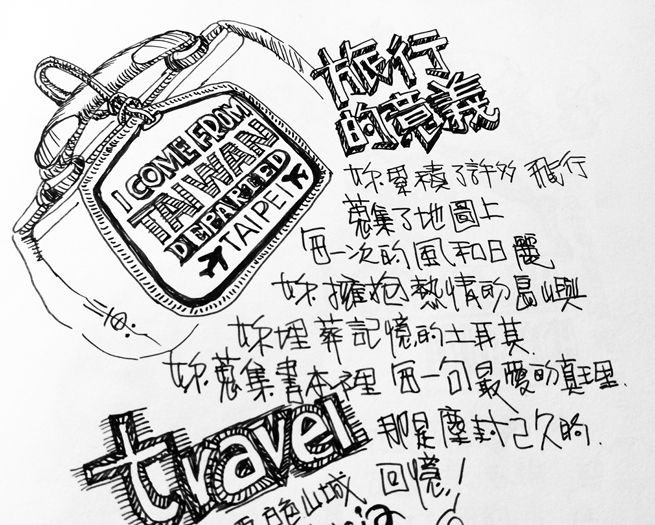 I COME FROM
TAIWAN
DEPARTED
TAIPEI
旅行
的意義
妳累積了許多飛行
蒐集了地圖上
每一次的風和日麗
妳擁抱熱情的島嶼
妳埋葬記憶的土耳其
妳蒐集書本裡每一句最愛的真理.
travel 那是塵封已久的.
回憶!
色山城